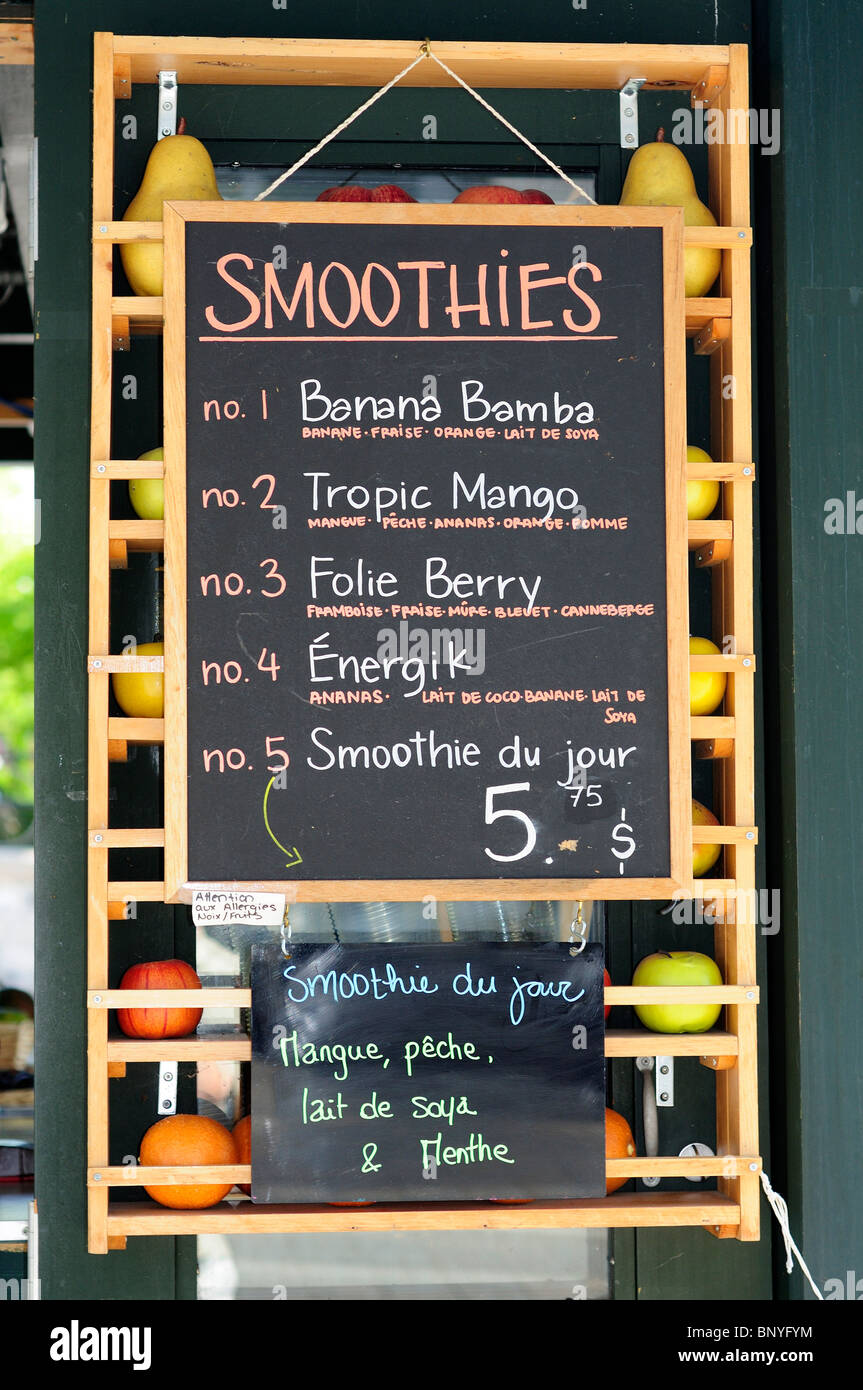 SMOOTHIES
no. 1 Banana Bamba
BANANE · FRAISE · ORANGE · LAIT DE SOYA
no. 2 Tropic Mango
MANGUE · PÊCHE · ANANAS · ORANGE · POMME
no. 3 Folie Berry
FRAMBOISE · FRAISE · MÛRE · BLEUET · CANNEBERGE
no. 4 Énergik
ANANAS · LAIT DE COCO · BANANE · LAIT DE
SOYA
no. 5 Smoothie du jour
5.75 $
Attention
aux Allergies
Noix/Fruits
Smoothie du jour
Mangue, pêche,
lait de soya
& Menthe
alamy
Image ID: BNYFYM
www.alamy.com